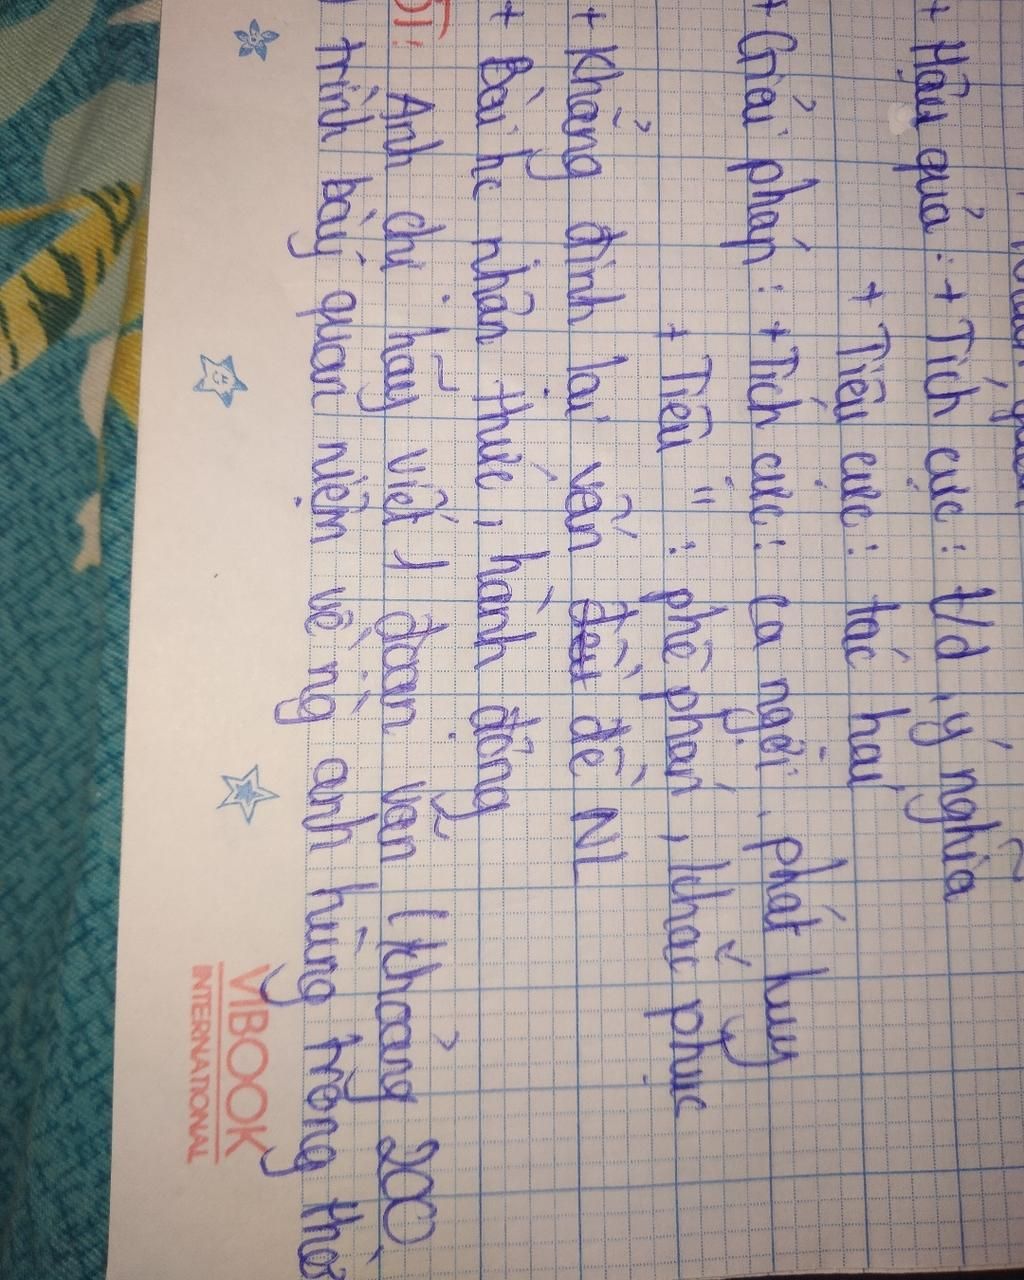 + Hậu quả : + Tích cực : t/d , ý nghĩa
+ Tiêu cực : tác hại
+ Giải pháp : + Tích cực : ca ngợi , phát huy
+ Tiêu " : phê phán , khắc phục
+ Khẳng định lại vấn đề NL
+ Bài hc nhận thức , hành động
ĐT: Anh chị hãy viết 1 đoạn văn ( khoảng 200
trình bày quan niệm về ng anh hùng trong thờ
VIBOOK
INTERNATIONAL